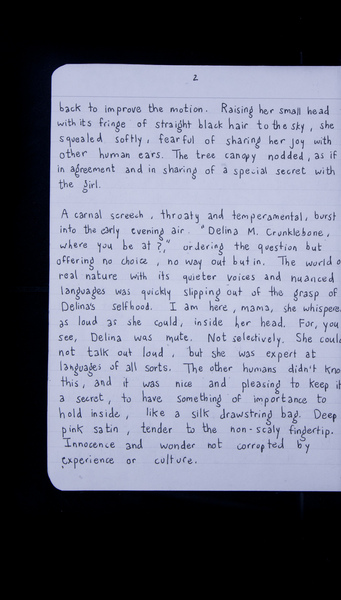 2
back to improve the motion. Raising her small head
with its fringe of straight black hair to the sky, she
squealed softly, fearful of sharing her joy with
other human ears. The tree canopy nodded, as if
in agreement and in sharing of a special secret with
the girl.
A carnal screech, throaty and temperamental, burst
into the early evening air. "Delina M. Crunklebone,
where you be at?," ordering the question but
offering no choice, no way out but in. The world o
real nature with its quieter voices and nuanced
languages was quickly slipping out of the grasp of
Delina's selfhood. I am here, mama, she whispere
as loud as she could, inside her head. For, you
see, Delina was mute. Not selectively. She coul
not talk out loud, but she was expert at
languages of all sorts. The other humans didn't kno
this, and it was nice and pleasing to keep it
a secret, to have something of importance to
hold inside, like a silk drawstring bag. Deep
pink satin, tender to the non-scaly fingertip.
Innocence and wonder not corrupted by
experience or culture.